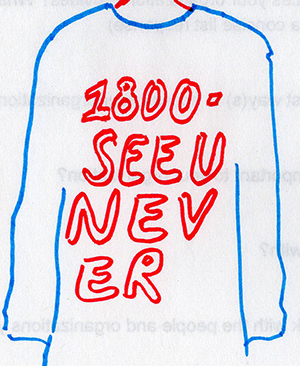 1800-
SEEU
NEV
ER